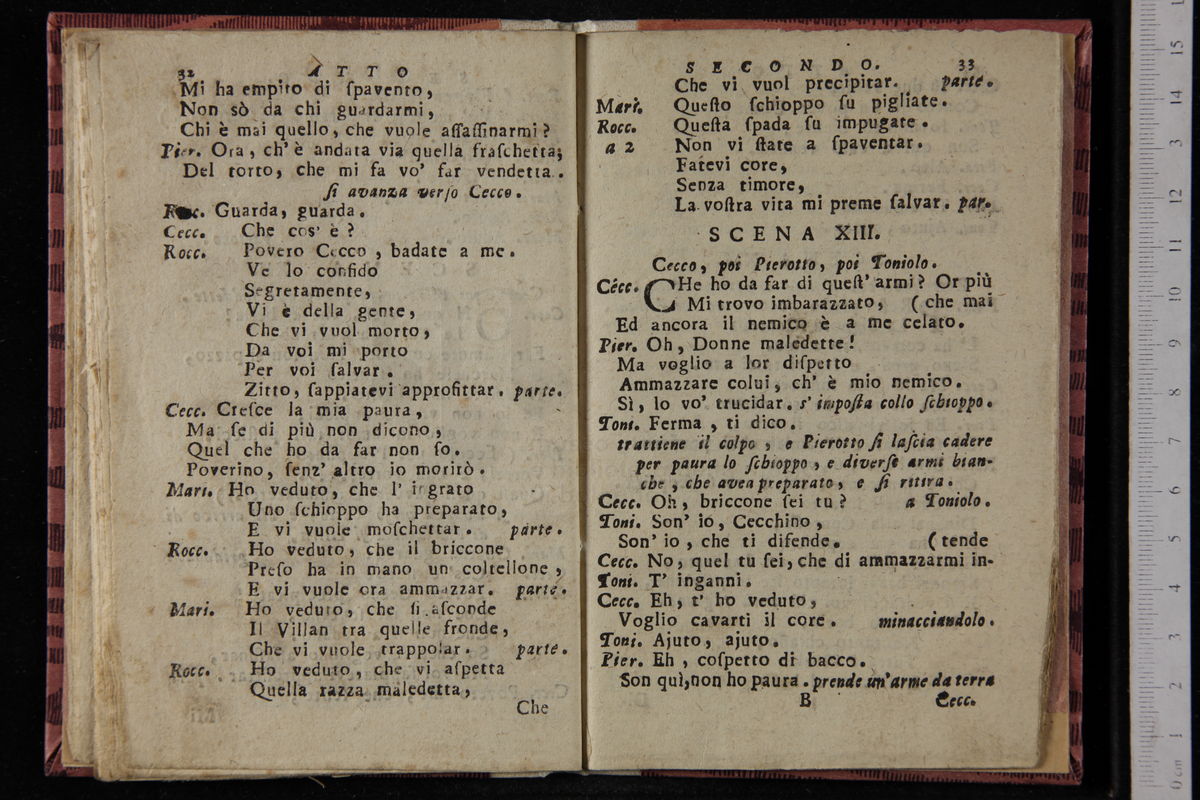 32 ATTO
Mi ha empito di ſpavento,
Non sò da chi guardarmi,
Chi è mai quello, che vuole aſſaſſinarmi?
Pier. Ora, ch' è andata via quella fraſchetta;
Del torto, che mi fa vo' far vendetta.
ſi avanza verſo Cecco.
Roc. Guarda, guarda.
Cecc. Che cos' è?
Rocc. Povero Cecco, badate a me.
Ve lo confido
Segretamente,
Vi è della gente,
Che vi vuol morto,
Da voi mi porto
Per voi ſalvar.
Zitto, ſappiatevi approfittar. parte.
Cecc. Creſce la mia paura,
Ma ſe di più non dicono,
Quel che ho da far non ſo.
Poverino, ſenz' altro io morirò.
Mari. Ho veduto, che l' ingrato
Uno ſchioppo ha preparato,
E vi vuole moſchettar. parte.
Rocc. Ho veduto, che il briccone
Preſo ha in mano un coltellone,
E vi vuole ora ammazzar. parte.
Mari. Ho veduto, che ſi aſconde
Il Villan tra quelle fronde,
Che vi vuole trappolar. parte.
Rocc. Ho veduto, che vi aſpetta
Quella razza maledetta,
Che
SECONDO. 33
Che vi vuol precipitar. parte.
Mari. Queſto ſchioppo ſu pigliate.
Rocc. Queſta ſpada ſu impugate.
a 2 Non vi ſtate a ſpaventar.
Fatevi core,
Senza timore,
La voſtra vita mi preme ſalvar. par.
SCENA XIII.
Cecco, poi Pierotto, poi Toniolo.
Cecc. CHe ho da far di queſt' armi? Or più
Mi trovo imbarazzato, (che mai
Ed ancora il nemico è a me celato.
Pier. Oh, Donne maledette!
Ma voglio a lor diſpetto
Ammazzare colui, ch' è mio nemico.
Sì, lo vo' trucidar. s' impoſta collo ſchioppo.
Toni. Ferma, ti dico.
trattiene il colpo, e Pierotto ſi laſcia cadere
per paura lo ſchioppo, e diverſe armi bian-
che, che avea preparato, e ſi ritira.
Cecc. Oh, briccone ſei tu? a Toniolo.
Toni. Son' io, Cecchino,
Son' io, che ti difende. (tende
Cecc. No, quel tu ſei, che di ammazzarmi in-
Toni. T' inganni.
Cecc. Eh, t' ho veduto,
Voglio cavarti il core. minacciandolo.
Toni. Ajuto, ajuto.
Pier. Eh, coſpetto di bacco.
Son quì, non ho paura. prende un' arme da terra
B Cecc.